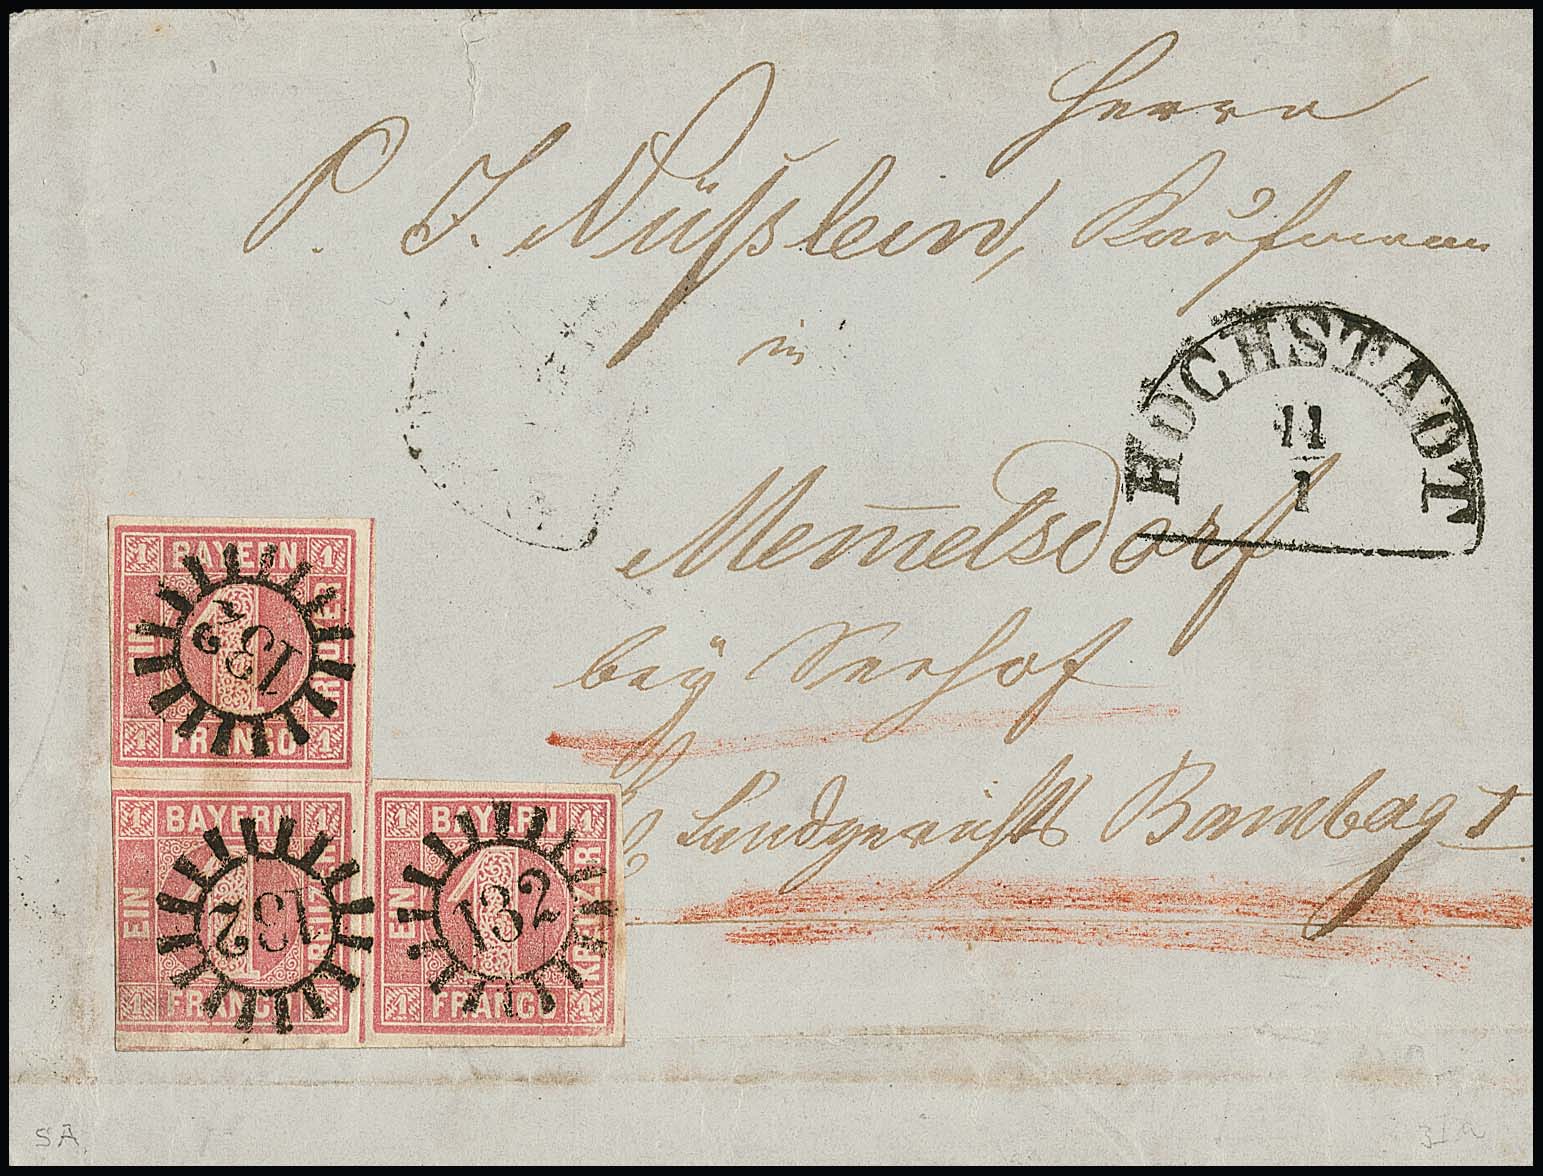 Herrn
P. J. Nüßlein, Kaufmann
in
HÖCHSTADT
11
1
Mem̅elsdorf
bey Seehof
Landgerichts Bambag I
1 BAYERN 1
EIN KREUZER
1 FRANCO 1
132
1 BAYERN 1
EIN 1 KREUZER
1 FRANCO 1
132
1 BAYERN 1
EIN 1 KREUZER
1 FRANCO 1
132
SA